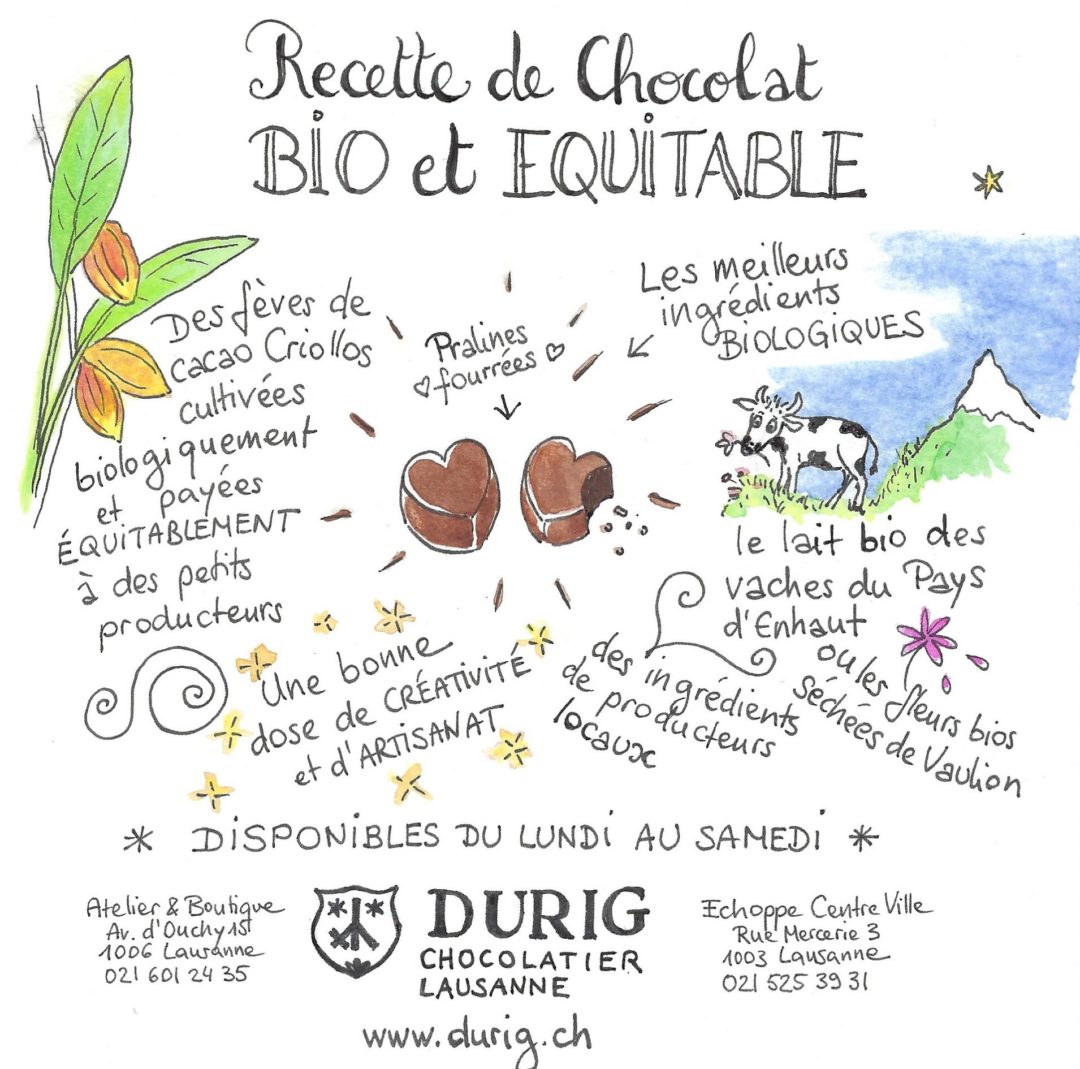 Recette de Chocolat
BIO et EQUITABLE
Des fèves de
cacao Criollos
cultivées
biologiquement
et payées
ÉQUITABLEMENT
à des petits
producteurs
Pralines
fourrées
Les meilleurs
ingrédients
BIOLOGIQUES
le lait bio des
vaches du Pays
d'Enhaut
ou les fleurs bios
séchées de Vaulion
des ingrédients
de producteurs
locaux
Une bonne
dose de CRÉATIVITÉ
et d'ARTISANAT
* DISPONIBLES DU LUNDI AU SAMEDI *
Atelier & Boutique
Av. d'Ouchy 15
1006 Lausanne
021 601 24 35
DURIG
CHOCOLATIER
LAUSANNE
www.durig.ch
Echoppe Centre Ville
Rue Mercerie 3
1003 Lausanne
021 525 39 31